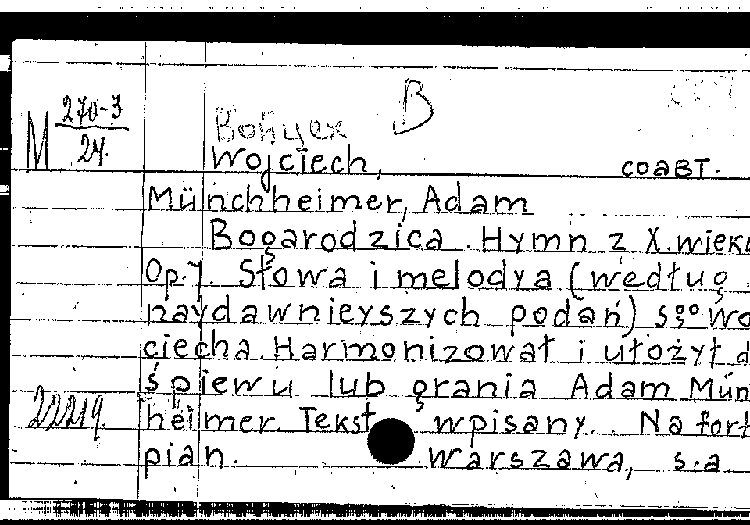 В
M 270-3
24.
Войцех
Wojciech, соавт.
Münchheimer, Adam
Bogarodzica. Hymn z X. wieku
Op. 7. Słowa i melodya (według
naydawnieyszych podań) ś-go Wo
ciecha. Harmonizował i ułożył d
śpiewu lub grania Adam Mün
heimer. Tekst wpisany. Na fort
22219.
pian. Warszawa, s.a